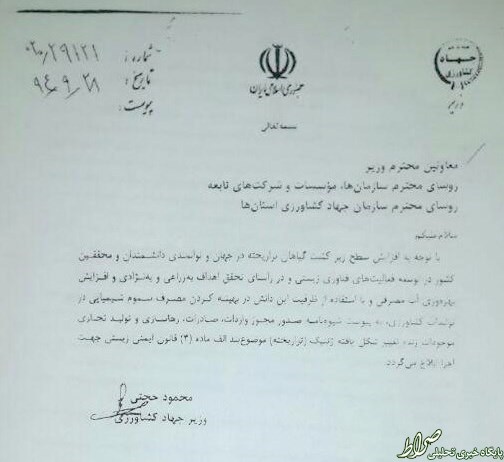 جهاد
کشاورزی
وزیر
جمهوری اسلامی ایران
شماره: ۰۲۰/۲۹۱۲۱
تاریخ: ۹۴/۹/۲۸
پیوست:
بسمه تعالی
معاونین محترم وزیر
روسای محترم سازمان‌ها، مؤسسات و شرکت‌های تابعه
روسای محترم سازمان جهاد کشاورزی استان‌ها
سلام علیکم
با توجه به افزایش سطح زیر کشت گیاهان تراریخته در جهان و توانمندی دانشمندان و محققین
کشور در توسعه فعالیت‌های فناوری زیستی و در راستای تحقق اهداف به‌زراعی و به‌نژادی و افزایش
بهره‌وری آب مصرفی و با استفاده از ظرفیت این دانش در بهینه کردن مصرف سموم شیمیایی در
تولیدات کشاورزی، به پیوست شیوه‌نامه صدور مجوز واردات، صادرات، رهاسازی و تولید تجاری
موجودات زنده تغییر شکل یافته ژنتیک (تراریخته) موضوع بند الف ماده (۴) قانون ایمنی زیستی جهت
اجرا ابلاغ می‌گردد.
محمود حجتی
وزیر جهاد کشاورزی
صراط
پایگاه خبری تحلیلی